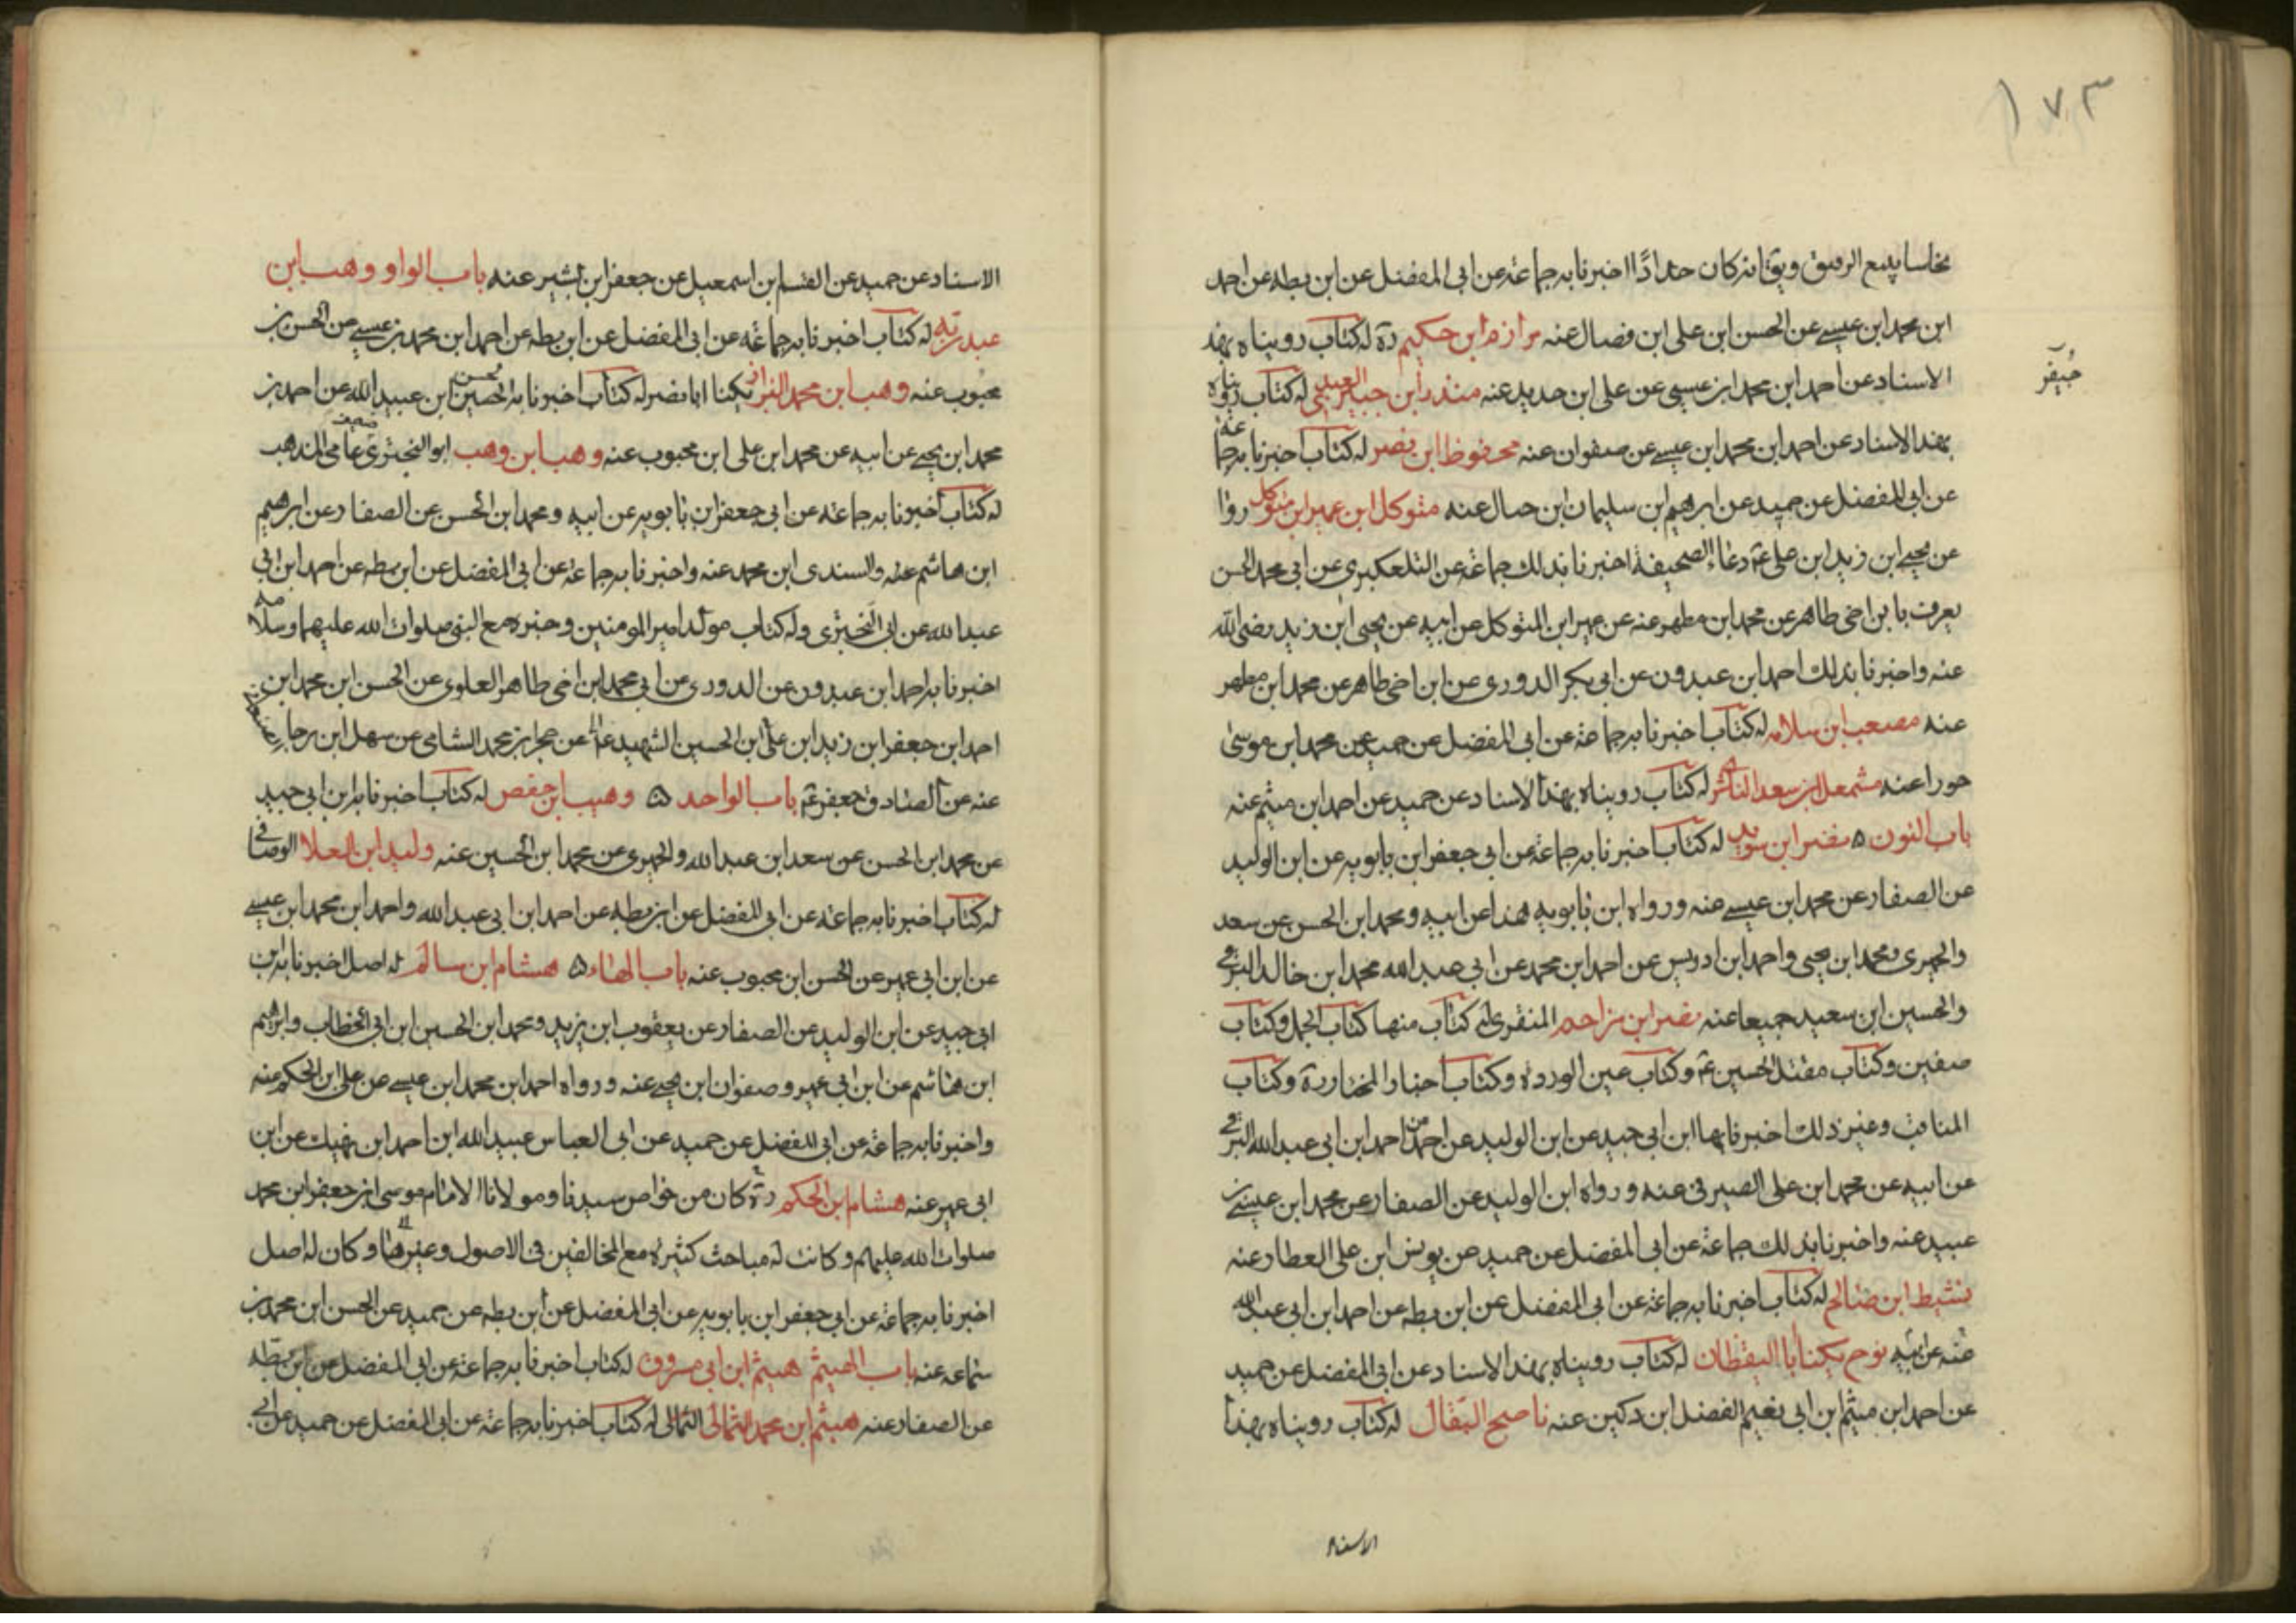 ١٧٣
نخاسا يبيع الرقيق ويق انه كان حدادًا اخبرنا به جماعة عن ابى المفضل عن ابن بطه عن احمد
ابن محمد ابن عيسى عن الحسن ابن على ابن فضال عنه مرازم ابن حكيم ره له كتاب رويناه بهذ
جيفر
الاسناد عن احمد ابن محمد ابن عيسى عن على ابن حديد عنه منذر ابن جيفر العبدى له كتاب رويناه
بهذ الاسناد عن احمد ابن محمد ابن عيسى عن صفوان عنه محفوظ ابن نصر له كتاب اخبرنا به جماعة
عن ابى المفضل عن حميد عن ابرهيم ابن سليمان ابن حيان عنه متوكل ابن عمير ابن متوكل روا
عن يحيى ابن زيد ابن على ع دعاء الصحيفة اخبرنا بذلك جماعة عن التلعكبرى عن ابى محمد الحسن
يعرف بابن اخى طاهر عن محمد ابن مطهر عنه عن عمير ابن المتوكل عن ابيه عن يحيى ابن زيد رضى الله
عنه واخبرنا بذلك احمد ابن عبدون عن ابى بكر الدورى عن ابن اخى طاهر عن محمد ابن مطهر
عنه مصعب ابن سلام له كتاب اخبرنا به جماعة عن ابى المفضل عن حميد عن محمد ابن موسى
حورا عنه مشمعل ابن سعد الناشرى له كتاب رويناه بهذ الاسناد عن حميد عن احمد ابن ميثم عنه
باب النون ه نضر ابن سويد له كتاب اخبرنا به جماعة عن ابى جعفر ابن بابويه عن ابن الوليد
عن الصفار عن محمد ابن عيسى عنه ورواه ابن بابويه هذا عن ابيه ومحمد ابن الحسن عن سعد
والحميرى ومحمد ابن يحيى واحمد ابن ادريس عن احمد ابن محمد عن ابى عبد الله محمد ابن خالد البرقى
والحسين ابن سعيد جميعا عنه نصر ابن مزاحم المنقرى له كتاب منها كتاب الجمل وكتاب
صفين وكتاب مقتل الحسين ع وكتاب عين الوردة وكتاب اخبار المختار ره وكتاب
المناقب وغير ذلك اخبرنا بها ابن ابى جيد عن ابن الوليد عن احمد احمد ابن ابى عبد الله البرقى
عن ابيه عن محمد ابن على الصيرفى عنه ورواه ابن الوليد عن الصفار عن محمد ابن عيسى بن
عبيد عنه واخبرنا بذلك جماعة عن ابى المفضل عن حميد عن يونس ابن على العطار عنه
نشيط ابن صالح له كتاب اخبرنا به جماعة عن ابى المفضل عن ابن بطه عن احمد ابن ابى عبد الله
عنه عن ابيه نوح يكنا ابا اليقظان له كتاب رويناه بهذ الاسناد عن ابى المفضل عن حميد
عن احمد ابن ميثم ابن ابى نعيم الفضل ابن دكين عنه ناصح البقال له كتاب رويناه بهذ
الاسناد
الاسناد عن حميد عن القسم ابن اسمعيل عن جعفر ابن بشير عنه باب الواو وهب ابن
عبد ربه له كتاب اخبرنا به جماعة عن ابى المفضل عن ابن بطه عن احمد ابن محمد بن عيسى عن الحسن بن
محبوب عنه وهب ابن محمد البزاز يكنا ابا نصر له كتاب اخبرنا به الحسين ابن عبيد الله عن احمد بن
محمد ابن يحيى عن ابيه عن محمد ابن على ابن محبوب عنه وهب ابن وهب ابو البخترى ضعيف عامى المذهب
له كتاب اخبرنا به جماعة عن ابى جعفر ابن بابويه عن ابيه ومحمد ابن الحسن عن الصفار عن ابرهيم
ابن هاشم عنه والسندى ابن محمد عنه واخبرنا به جماعة عن ابى المفضل عن ابن بطه عن احمد ابن ابى
عبد الله عن ابى البخترى وله كتاب مولد امير المومنين وخبره مع النبى صلوات الله عليهما وسلامه
اخبرنا به احمد ابن عبدون عن الدورى عن ابى محمد ابن اخى طاهر العلوى عن الحسن ابن محمد ابن
احمد ابن جعفر ابن زيد ابن على ابن الحسين الشهيد عن حجر بن محمد الشامى عن سهل ابن رجا
عنه عن الصادق جعفر ع باب الواحد ه وهيب ابن حفص له كتاب اخبرنا به ابن ابى جيد
عن محمد ابن الحسن عن سعد ابن عبد الله والحميرى عن محمد ابن الحسين عنه وليد ابن العلا الوصافى
له كتاب اخبرنا به جماعة عن ابى المفضل عن ابن بطه عن احمد ابن ابى عبد الله واحمد ابن محمد ابن عيسى
عن ابن ابى عمير عن الحسن ابن محبوب عنه باب الهاء ه هشام ابن سالم له اصل اخبرنا به ابن
ابى جيد عن ابن الوليد عن الصفار عن يعقوب ابن يزيد ومحمد ابن الحسين ابن ابى الخطاب وابرهيم
ابن هاشم عن ابن ابى عمير وصفوان ابن يحيى عنه ورواه احمد ابن محمد ابن عيسى عن على ابن الحكم عنه
واخبرنا به جماعة عن ابى المفضل عن حميد عن ابى العباس عبيد الله ابن احمد ابن نهيك عن ابن
ابى عمير عنه هشام ابن الحكم ره كان من خواص سيدنا ومولانا الامام موسى ابن جعفر ابن محمد
صلوات الله عليهم وكانت له مباحث كثيرة مع المخالفين فى الاصول وغيرها وكان له اصل
اخبرنا به جماعة عن ابى جعفر ابن بابويه عن ابى المفضل عن ابن بطه عن حميد عن الحسن ابن محمد بن
سماعه عنه باب الهيثم هيثم ابن ابى مسروق له كتاب اخبرنا به جماعة عن ابى المفضل عن ابن بطه
عن الصفار عنه هيثم ابن محمد الثمالى الثمالى له كتاب اخبرنا به جماعة عن ابى المفضل عن حميد عن ابى